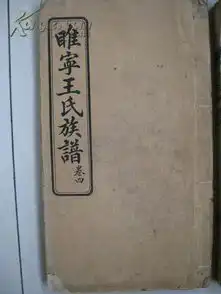 睢寧王氏族譜
卷四